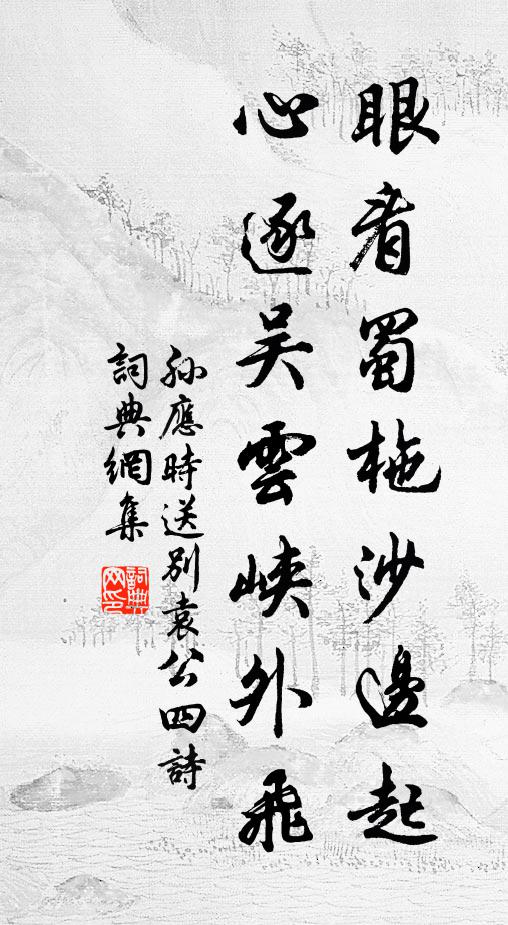 眼看蜀柂沙邊起
心逐吴雲峽外飛
孫應時送别袁公四詩
詞典網集
詞典网印